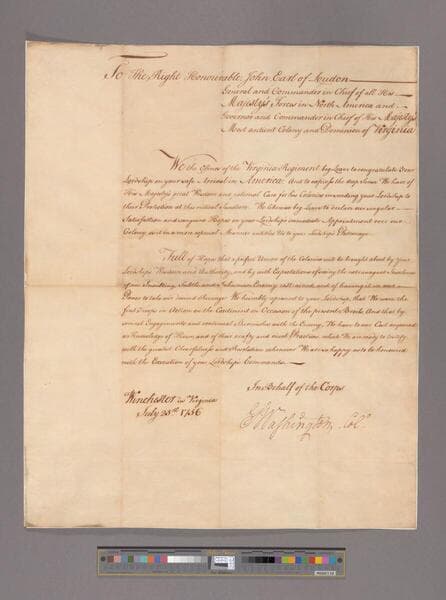 To The Right Honourable John Earl of Loudon
General and Commander in Chief of all His
Majesty's Forces in North America and
Governor and Commander in Chief of His Majesty's
Most antient Colony and Dominion of Virginia
We the Officers of the Virginia Regiment beg Leave to congratulate Your
Lordship on your safe Arrival in America: And to express the deep Sense We have of
His Majesty's great Wisdom and paternal Care for his Colonies in sending your Lordship to
their Protection at this critical Juncture. We likewise beg Leave to declare our singular
Satisfaction and sanguine Hopes on your Lordship's immediate Appointment over our
Colony, as it in a more especial Manner entitles Us to your Lordship's Patronage.
Full of Hopes that a perfect Union of the Colonies will be brought about by Your
Lordship's Wisdom and Authority, and big with Expectations of seeing the extravagant Insolence
of an Insulting, Subtle and Inhuman Enemy restrained, and of having it in our
Power to take our desired Revenge: We humbly represent to your Lordship, that We were the
first Troops in Action on the Continent on Occasion of the present Broils And that by
several Engagements and continual Skirmishes with the Enemy, We have to our Cost acquired
a Knowledge of Them, and of their crafty and cruel Practices, which We are ready to testify
with the greatest Chearfulness and Resolution whenever We are so happy as to be honoured
with the Execution of your Lordship's Commands.
In Behalf of the Corps
Winchester in Virginia
July 25th 1756
Go: Washington Colo.